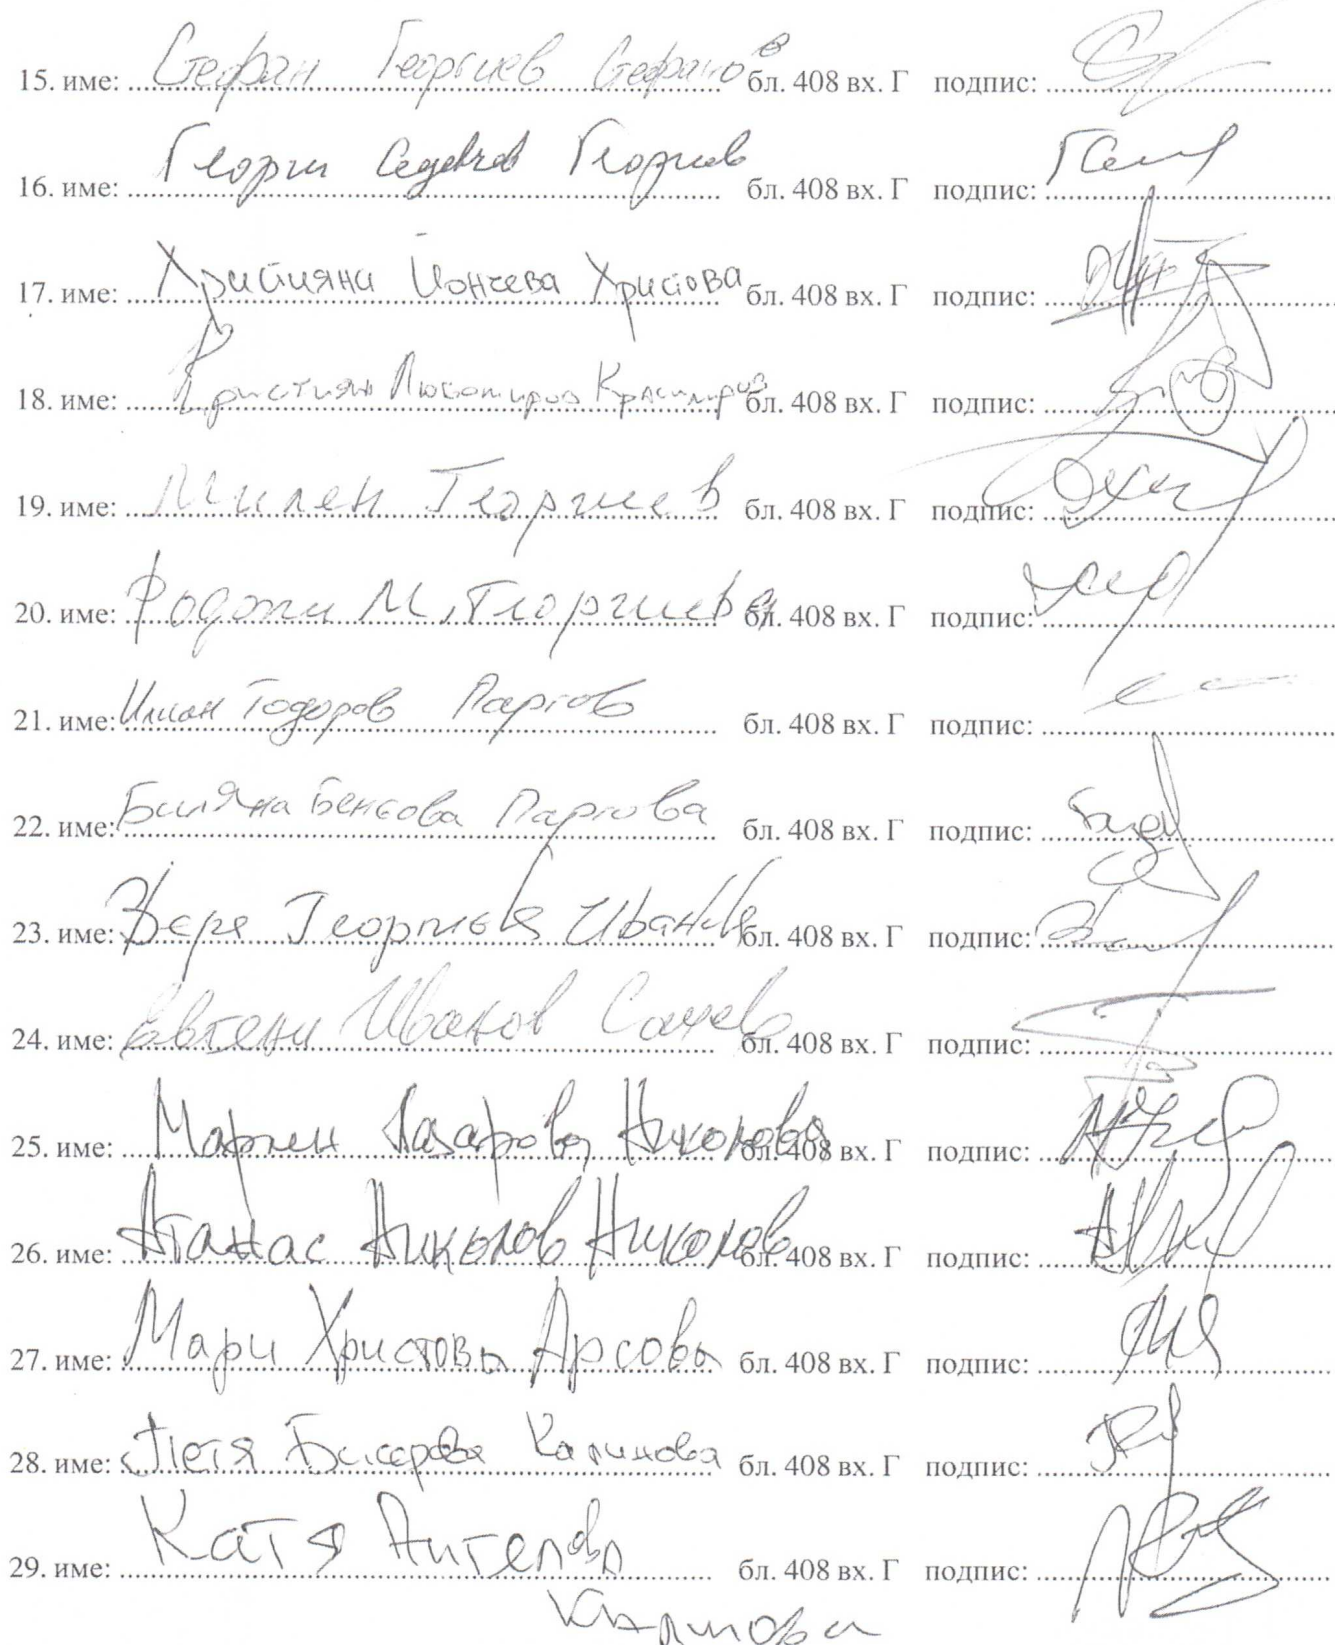 15. име: Стефан Георгиев Стефанов бл. 408 вх. Г подпис:
16. име: Георги Георгиев бл. 408 вх. Г подпис:
17. име: Християна Йончева Христова бл. 408 вх. Г подпис:
18. име: Кристиян Любомиров Красимиров бл. 408 вх. Г подпис:
19. име: Милен Георгиев бл. 408 вх. Г подпис:
20. име: М. Георгиева бл. 408 вх. Г подпис:
21. име: Илиан Тодоров Паргов бл. 408 вх. Г подпис:
22. име: Биляна Бенкова Паргова бл. 408 вх. Г подпис:
23. име: Вера Георгиева Иванова бл. 408 вх. Г подпис:
24. име: Евгени Иванов бл. 408 вх. Г подпис:
25. име: Лазарова Николова бл. 408 вх. Г подпис:
26. име: Атанас Николов Николов бл. 408 вх. Г подпис:
27. име: Мари Христова Арсова бл. 408 вх. Г подпис:
28. име: Петя Бисерова Калинова бл. 408 вх. Г подпис:
29. име: Катя Ангелова бл. 408 вх. Г подпис:
Калинова